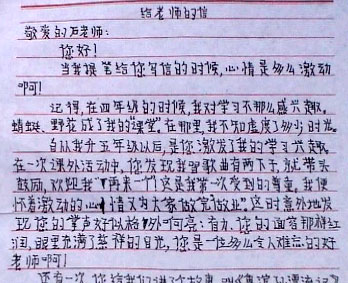 给老师的信
敬爱的石老师:
您好!
当我提笔给您写信的时候,心情是多么激动
啊!
记得,在四年级的时候,我对学习不那么感兴趣。
蜻蜓、野花成了我的“课堂”。在那里,我不知虚度了多少时光。
自从我升五年级以后,是您激发了我的学习兴趣。
在一次课外活动中,您发现我唱歌曲有两下子,就带头
鼓励,欢迎我“再来一个”这是我第一次受到的尊重,我便
怀着激动的心情又为大家做完 这时意外地发
现您的掌声好似格外响亮:有力,您的面容那样红
润,眼里充满了慈祥的目光,您是一位多么令人难忘的好
老师啊!
还有一次,您给我们讲了个故事,叫《鲁滨逊漂流记》